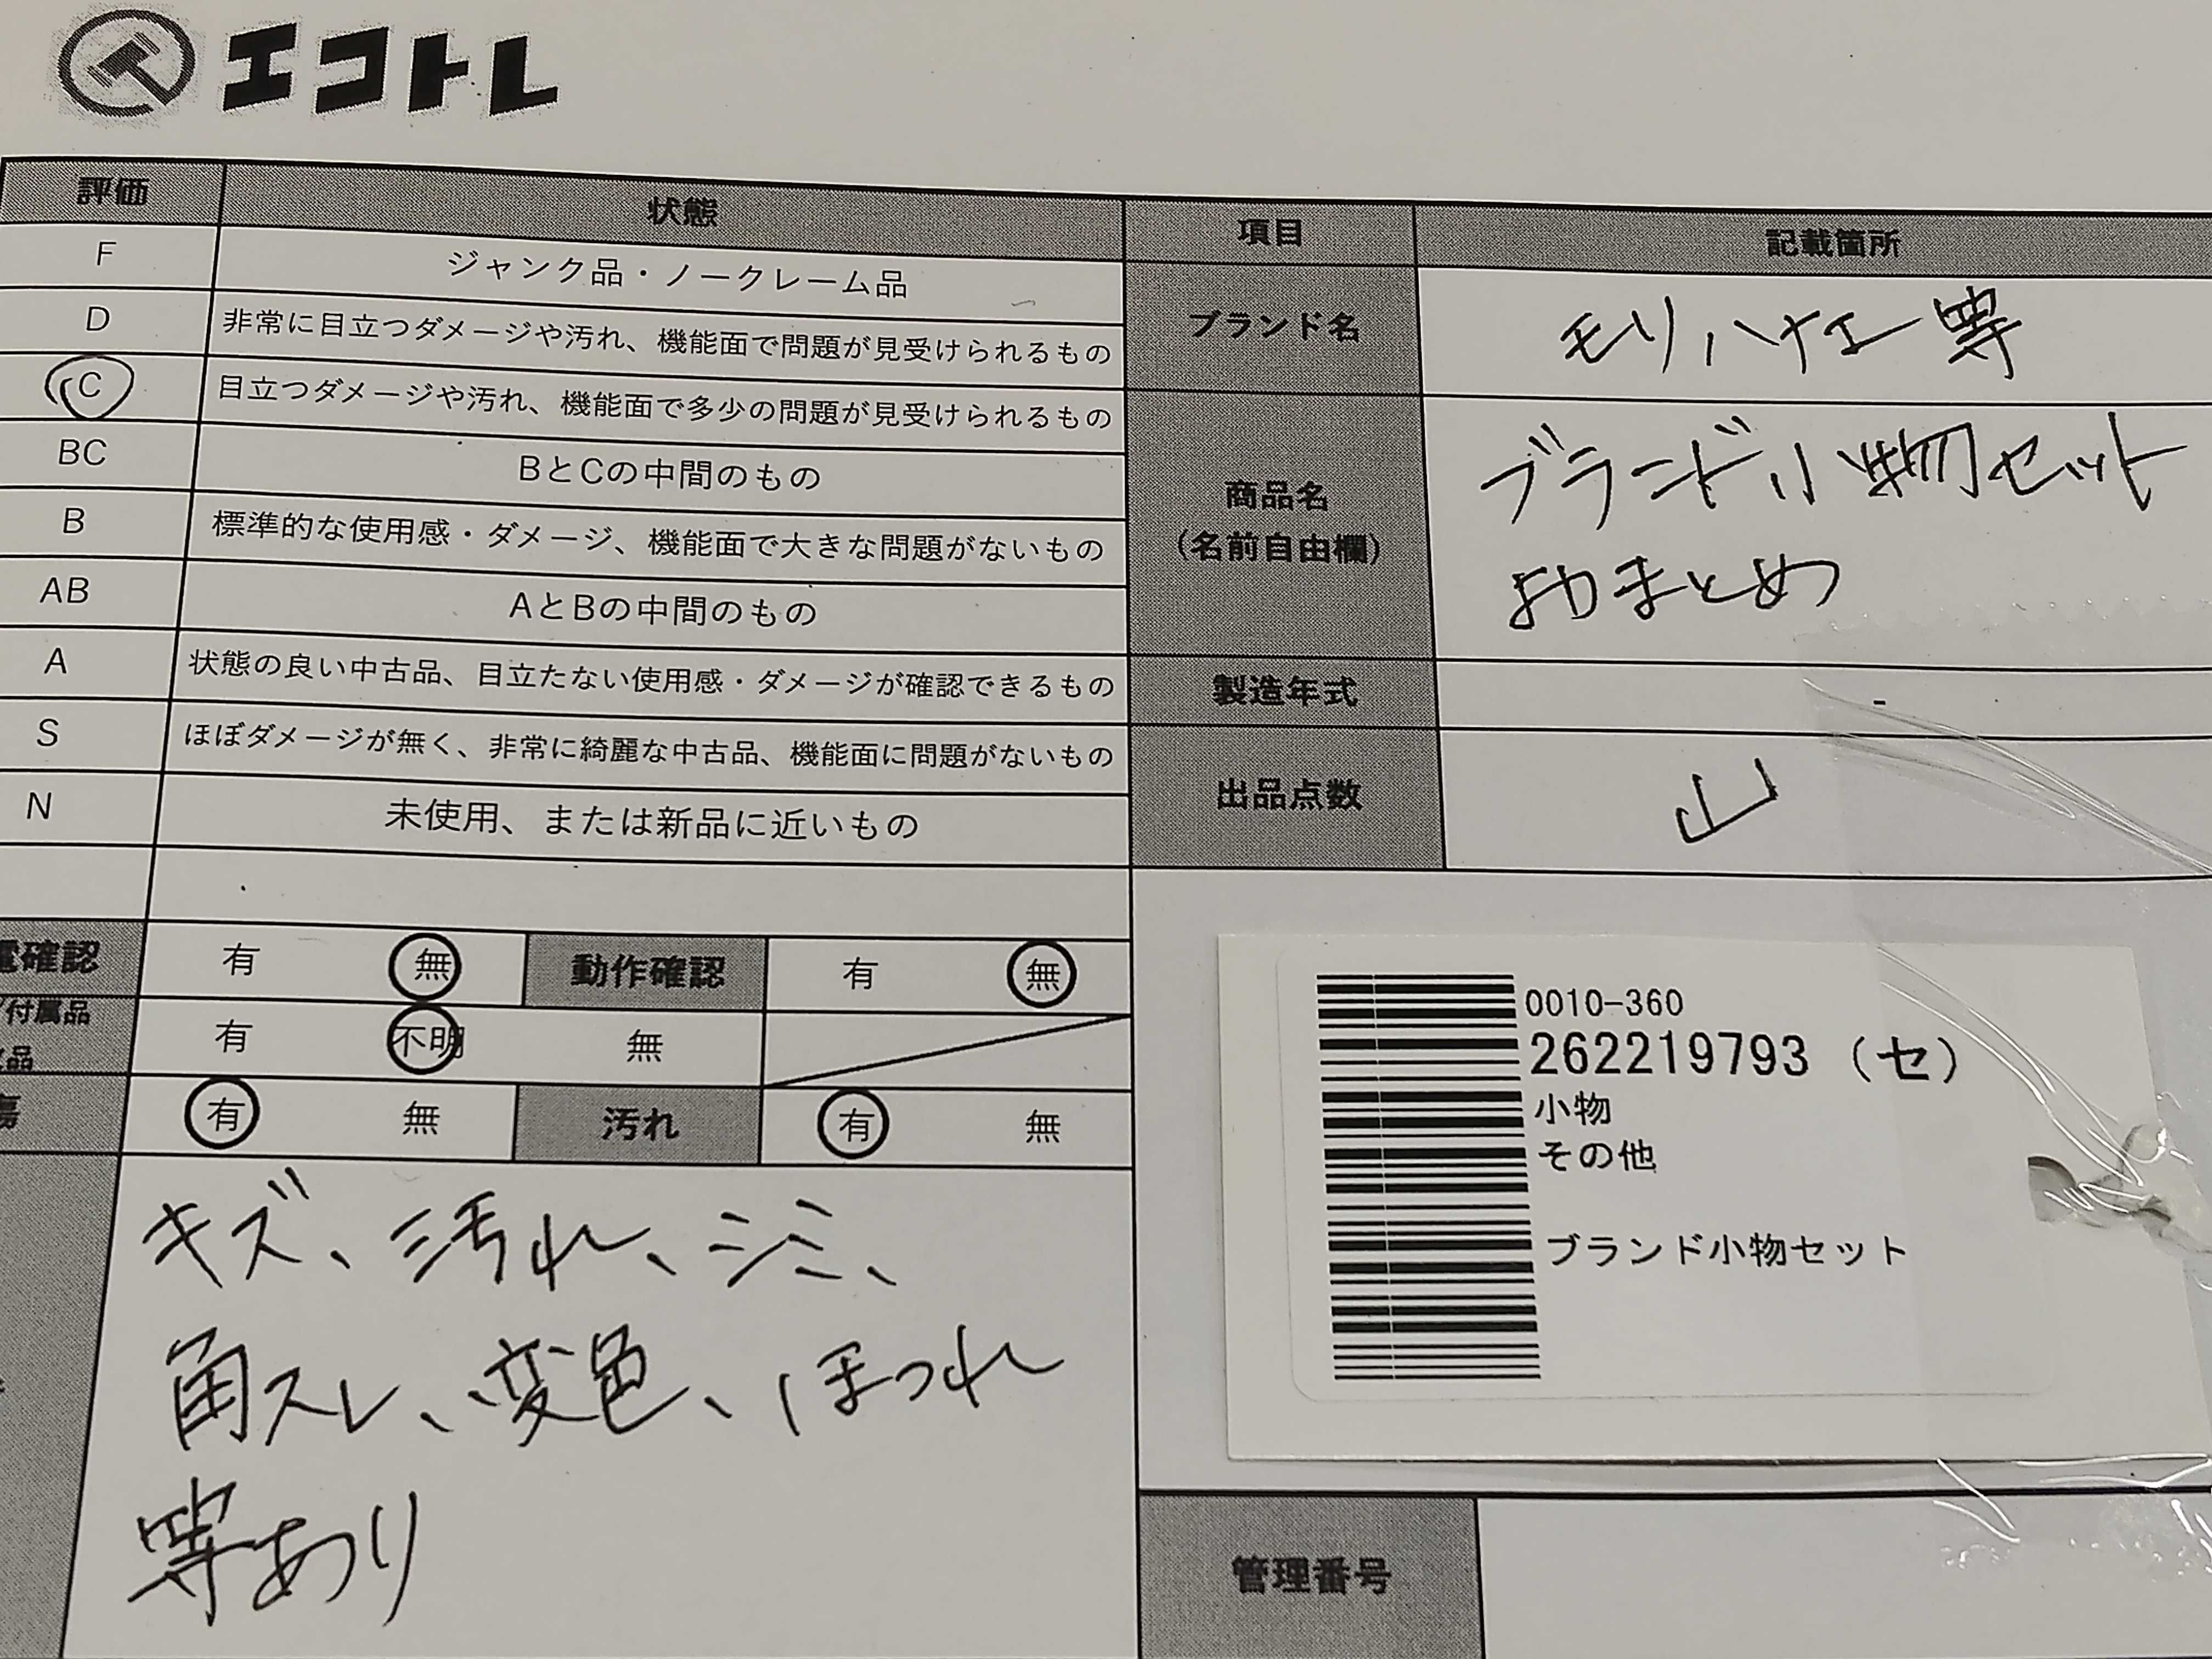 エコトレ
評価 状態
F ジャンク品・ノークレーム品
D 非常に目立つダメージや汚れ、機能面で問題が見受けられるもの
C 目立つダメージや汚れ、機能面で多少の問題が見受けられるもの
BC BとCの中間のもの
B 標準的な使用感・ダメージ、機能面で大きな問題がないもの
AB AとBの中間のもの
A 状態の良い中古品、目立たない使用感・ダメージが確認できるもの
S ほぼダメージが無く、非常に綺麗な中古品、機能面に問題がないもの
N 未使用、または新品に近いもの
電確認 有 無 動作確認 有 無
付属品 有 不明 無
品
傷 有 無 汚れ 有 無
キズ、汚れ、シミ、
角スレ、変色、ほつれ
等あり
項目 記載箇所
ブランド名 モリハナエ 等
商品名
(名前自由欄)
ブランド小物セット
おまとめ
製造年式 -
出品点数 山
0010-360
262219793 (セ)
小物
その他
ブランド小物セット
管理番号